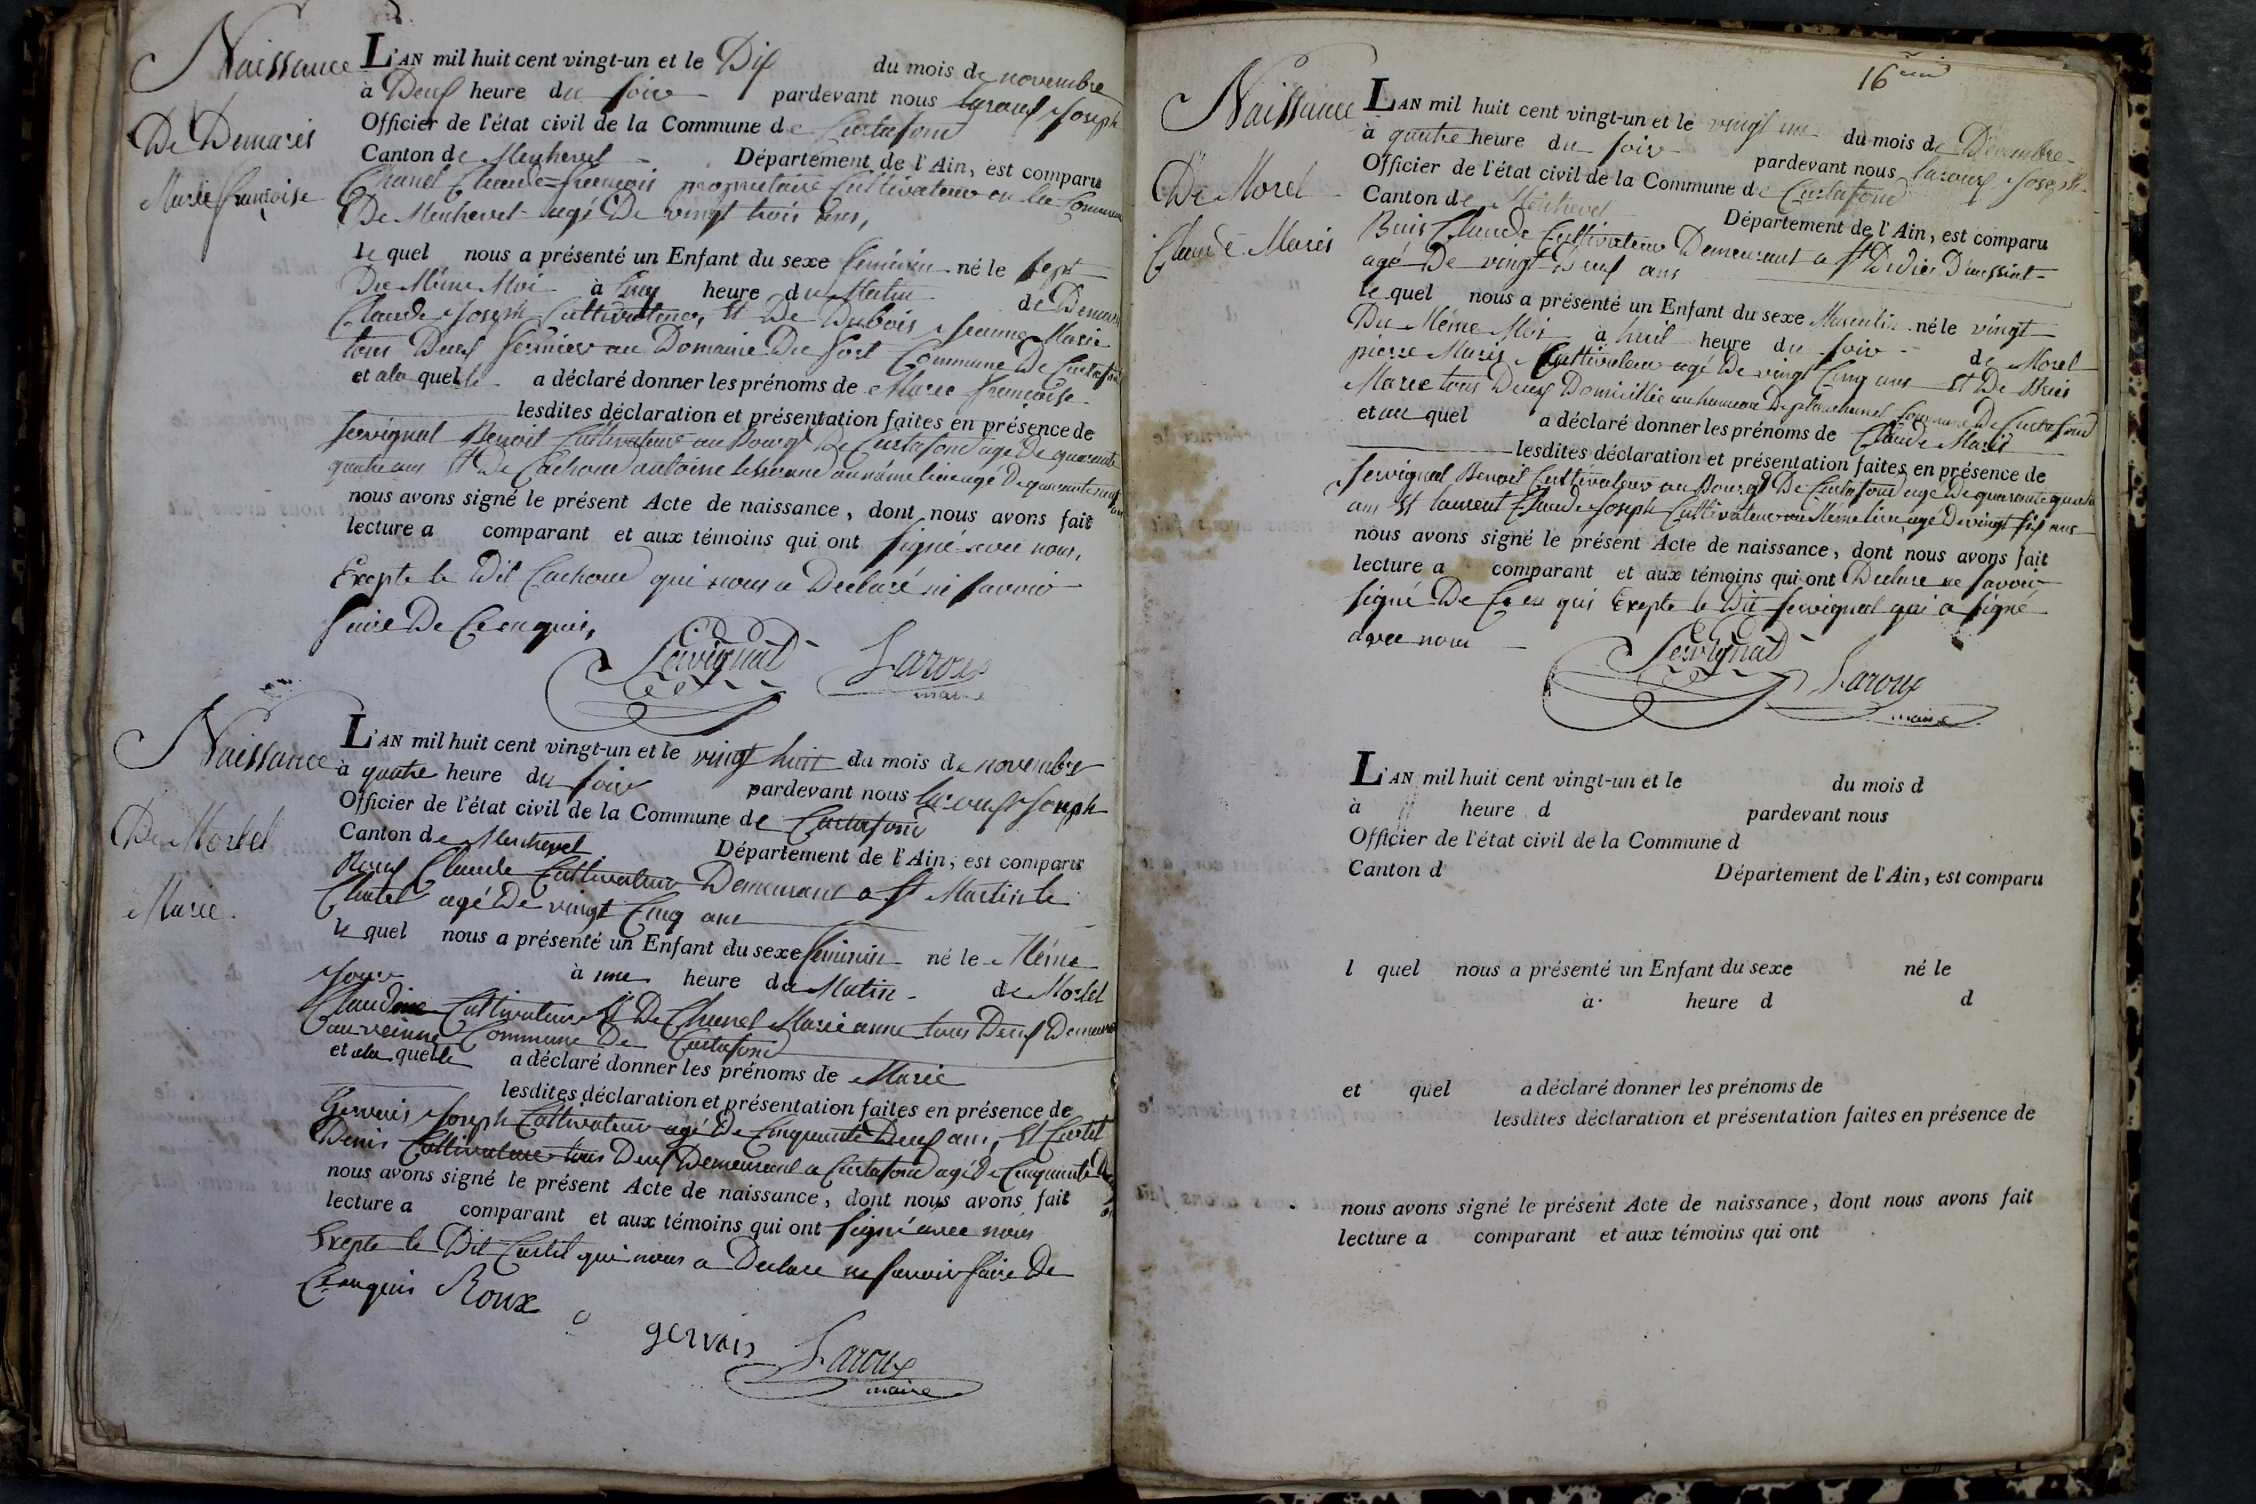 Naissance
De Demaris
Marie françoise
L'AN mil huit cent vingt-un et le Dix du mois de novembre
à Deux heure du soir pardevant nous laroux Joseph
Officier de l'état civil de la Commune de Curtafond
Canton de Monhevel Département de l'Ain, est comparu
Chanel Claude=françois proprietaire Cultivateur en la Commune
De Monhevel agé De vingt trois ans,
le quel nous a présenté un Enfant du sexe feminin né le sept
Du Même Moi à Cinq heure du Matin de Demaris
Claude Joseph Cultivateur, Et De Dubois Jeanne Marie
tous Deux fermier au Domaine Du fort Commune De Curtafond
et ala quelle a déclaré donner les prénoms de Marie françoise
lesdites déclaration et présentation faites en présence de
servignat Benoit Cultivateur au Bourg De Curtafond agé De quarante
quatre ans Et De Cachoud antoine au même lieu agé De quarante neuf ans
nous avons signé le présent Acte de naissance, dont nous avons fait
lecture a comparant et aux témoins qui ont signé avec nous,
Exepte le Dit Cachoud qui nous a Declaré ne savoir
faire De Ce enquis,
Servignat Laroux
maire
Naissance
De Morlel
Marie
L'AN mil huit cent vingt-un et le vingt huit du mois de novembre
à quatre heure du soir pardevant nous laroux Joseph
Officier de l'état civil de la Commune de Curtafond
Canton de Monhevel Département de l'Ain, est comparu
Roux Claude Cultivateur Demeurant a St Martin le
Chatel agé De vingt Cinq ans
le quel nous a présenté un Enfant du sexe feminin né le Même
Jour à une heure du Matin de Morlel
Claudine Cultivateur Et De Chanel Marie anne tous Deux Demeurant
Commune De Curtafond
et ala quelle a déclaré donner les prénoms de Marie
lesdites déclaration et présentation faites en présence de
Gervais Joseph Cultivateur agé De Cinquante Deux ans, Et Curtet
Denis Cultivateur tous Deux Demeurant a Curtafond agé De Cinquante
nous avons signé le présent Acte de naissance, dont nous avons fait
lecture a comparant et aux témoins qui ont signé avec nous
Exepte le Dit Curtet qui nous a Declare ne savoir faire De
Ce enquis Roux
gervais Laroux
maire
16eme
Naissance
De Morel
Claude Maris
L'AN mil huit cent vingt-un et le vingt un du mois de Décembre
à quatre heure du soir pardevant nous laroux Joseph
Officier de l'état civil de la Commune de Curtafond
Canton de Monhevel Département de l'Ain, est comparu
Buis Claude Cultivateur Demeurant a St Didier D'aussiat
agé De vingt Deux ans
le quel nous a présenté un Enfant du sexe Masculin né le vingt
Du Même Moi à huit heure du soir de Morel
pierre Maris Cultivateur agé De vingt Cinq ans Et De Buis
Marie tous Deux Domicillié au hameau De Commune De Curtafond
et au quel a déclaré donner les prénoms de Claude Maris
lesdites déclaration et présentation faites en présence de
Servignat Benoit Cultivateur au Bourg De Curtafond agé De quarante quatre
ans Et laurent Claude Joseph Cultivateur au Même lieu agé De vingt six ans
nous avons signé le présent Acte de naissance, dont nous avons fait
lecture a comparant et aux témoins qui ont Declare ne savoir
signé De Ce en quis Exepte le Dit servignat qui a signé
avec nous
Servignat Laroux
maire
L'AN mil huit cent vingt-un et le du mois d
à heure d pardevant nous
Officier de l'état civil de la Commune d
Canton d Département de l'Ain, est comparu
l quel nous a présenté un Enfant du sexe né le
à heure d d
et quel a déclaré donner les prénoms de
lesdites déclaration et présentation faites en présence de
nous avons signé le présent Acte de naissance, dont nous avons fait
lecture a comparant et aux témoins qui ont